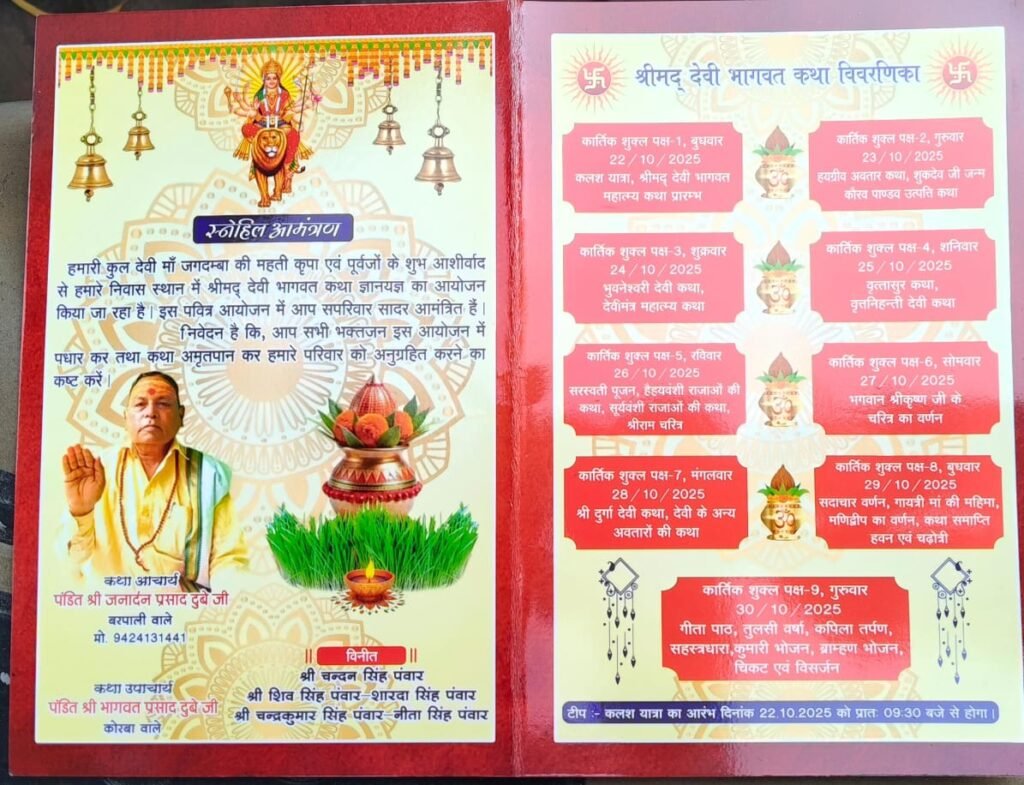 स्नेहिल आमंत्रण
हमारी कुल देवी माँ जगदम्बा की महती कृपा एवं पूर्वजों के शुभ आशीर्वाद
से हमारे निवास स्थान में श्रीमद् देवी भागवत कथा ज्ञानयज्ञ का आयोजन
किया जा रहा है। इस पवित्र आयोजन में आप सपरिवार सादर आमंत्रित हैं।
निवेदन है कि, आप सभी भक्तजन इस आयोजन में
पधार कर तथा कथा अमृतपान कर हमारे परिवार को अनुग्रहित करने का
कष्ट करें।
कथा आचार्य
पंडित श्री जनार्दन प्रसाद दुबे जी
बरपाली वाले
मो. 9424131441
कथा उपाचार्य
पंडित श्री भागवत प्रसाद दुबे जी
कोरबा वाले
॥ विनीत ॥
श्री चन्दन सिंह पंवार
श्री शिव सिंह पंवार-शारदा सिंह पंवार
श्री चन्द्रकुमार सिंह पंवार-नीता सिंह पंवार
श्रीमद् देवी भागवत कथा विवरणिका
कार्तिक शुक्ल पक्ष-1, बुधवार
22/10/2025
कलश यात्रा, श्रीमद् देवी भागवत
महात्म्य कथा प्रारम्भ
कार्तिक शुक्ल पक्ष-2, गुरुवार
23/10/2025
हयग्रीव अवतार कथा, शुकदेव जी जन्म
कौरव पाण्डव उत्पति कथा
कार्तिक शुक्ल पक्ष-3, शुक्रवार
24/10/2025
भुवनेश्वरी देवी कथा,
देवीमंत्र महात्म्य कथा
कार्तिक शुक्ल पक्ष-4, शनिवार
25/10/2025
वृत्तासुर कथा,
वृत्तनिहन्ती देवी कथा
कार्तिक शुक्ल पक्ष-5, रविवार
26/10/2025
सरस्वती पूजन, हैहयवंशी राजाओं की
कथा, सूर्यवंशी राजाओं की कथा,
श्रीराम चरित्र
कार्तिक शुक्ल पक्ष-6, सोमवार
27/10/2025
भगवान श्रीकृष्ण जी के
चरित्र का वर्णन
कार्तिक शुक्ल पक्ष-7, मंगलवार
28/10/2025
श्री दुर्गा देवी कथा, देवी के अन्य
अवतारों की कथा
कार्तिक शुक्ल पक्ष-8, बुधवार
29/10/2025
सदाचार वर्णन, गायत्री मां की महिमा,
मणिद्वीप का वर्णन, कथा समाप्ति
हवन एवं चढ़ोत्री
कार्तिक शुक्ल पक्ष-9, गुरुवार
30/10/2025
गीता पाठ, तुलसी वर्षा, कपिला तर्पण,
सहस्त्रधारा,कुमारी भोजन, ब्राम्हण भोजन,
चिकट एवं विसर्जन
टीप :- कलश यात्रा का आरंभ दिनांक 22.10.2025 को प्रातः 09:30 बजे से होगा।